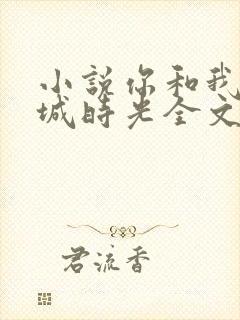 小说你和我
城时光全文
君流香